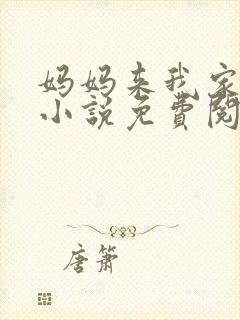 妈妈来我家
小説免費閱
唐箫